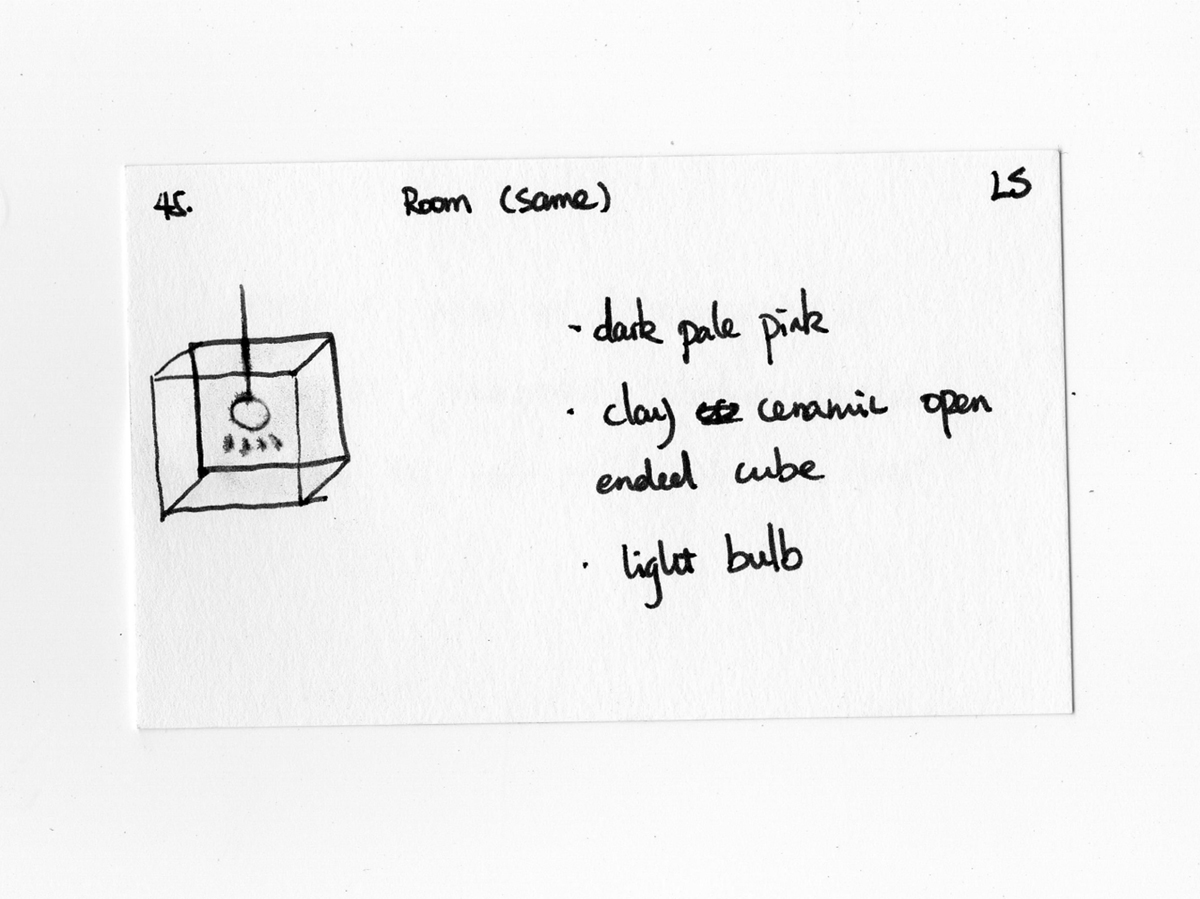 45. Room (same) LS
- dark pale pink
· clay ceramic open
ended cube
· light bulb